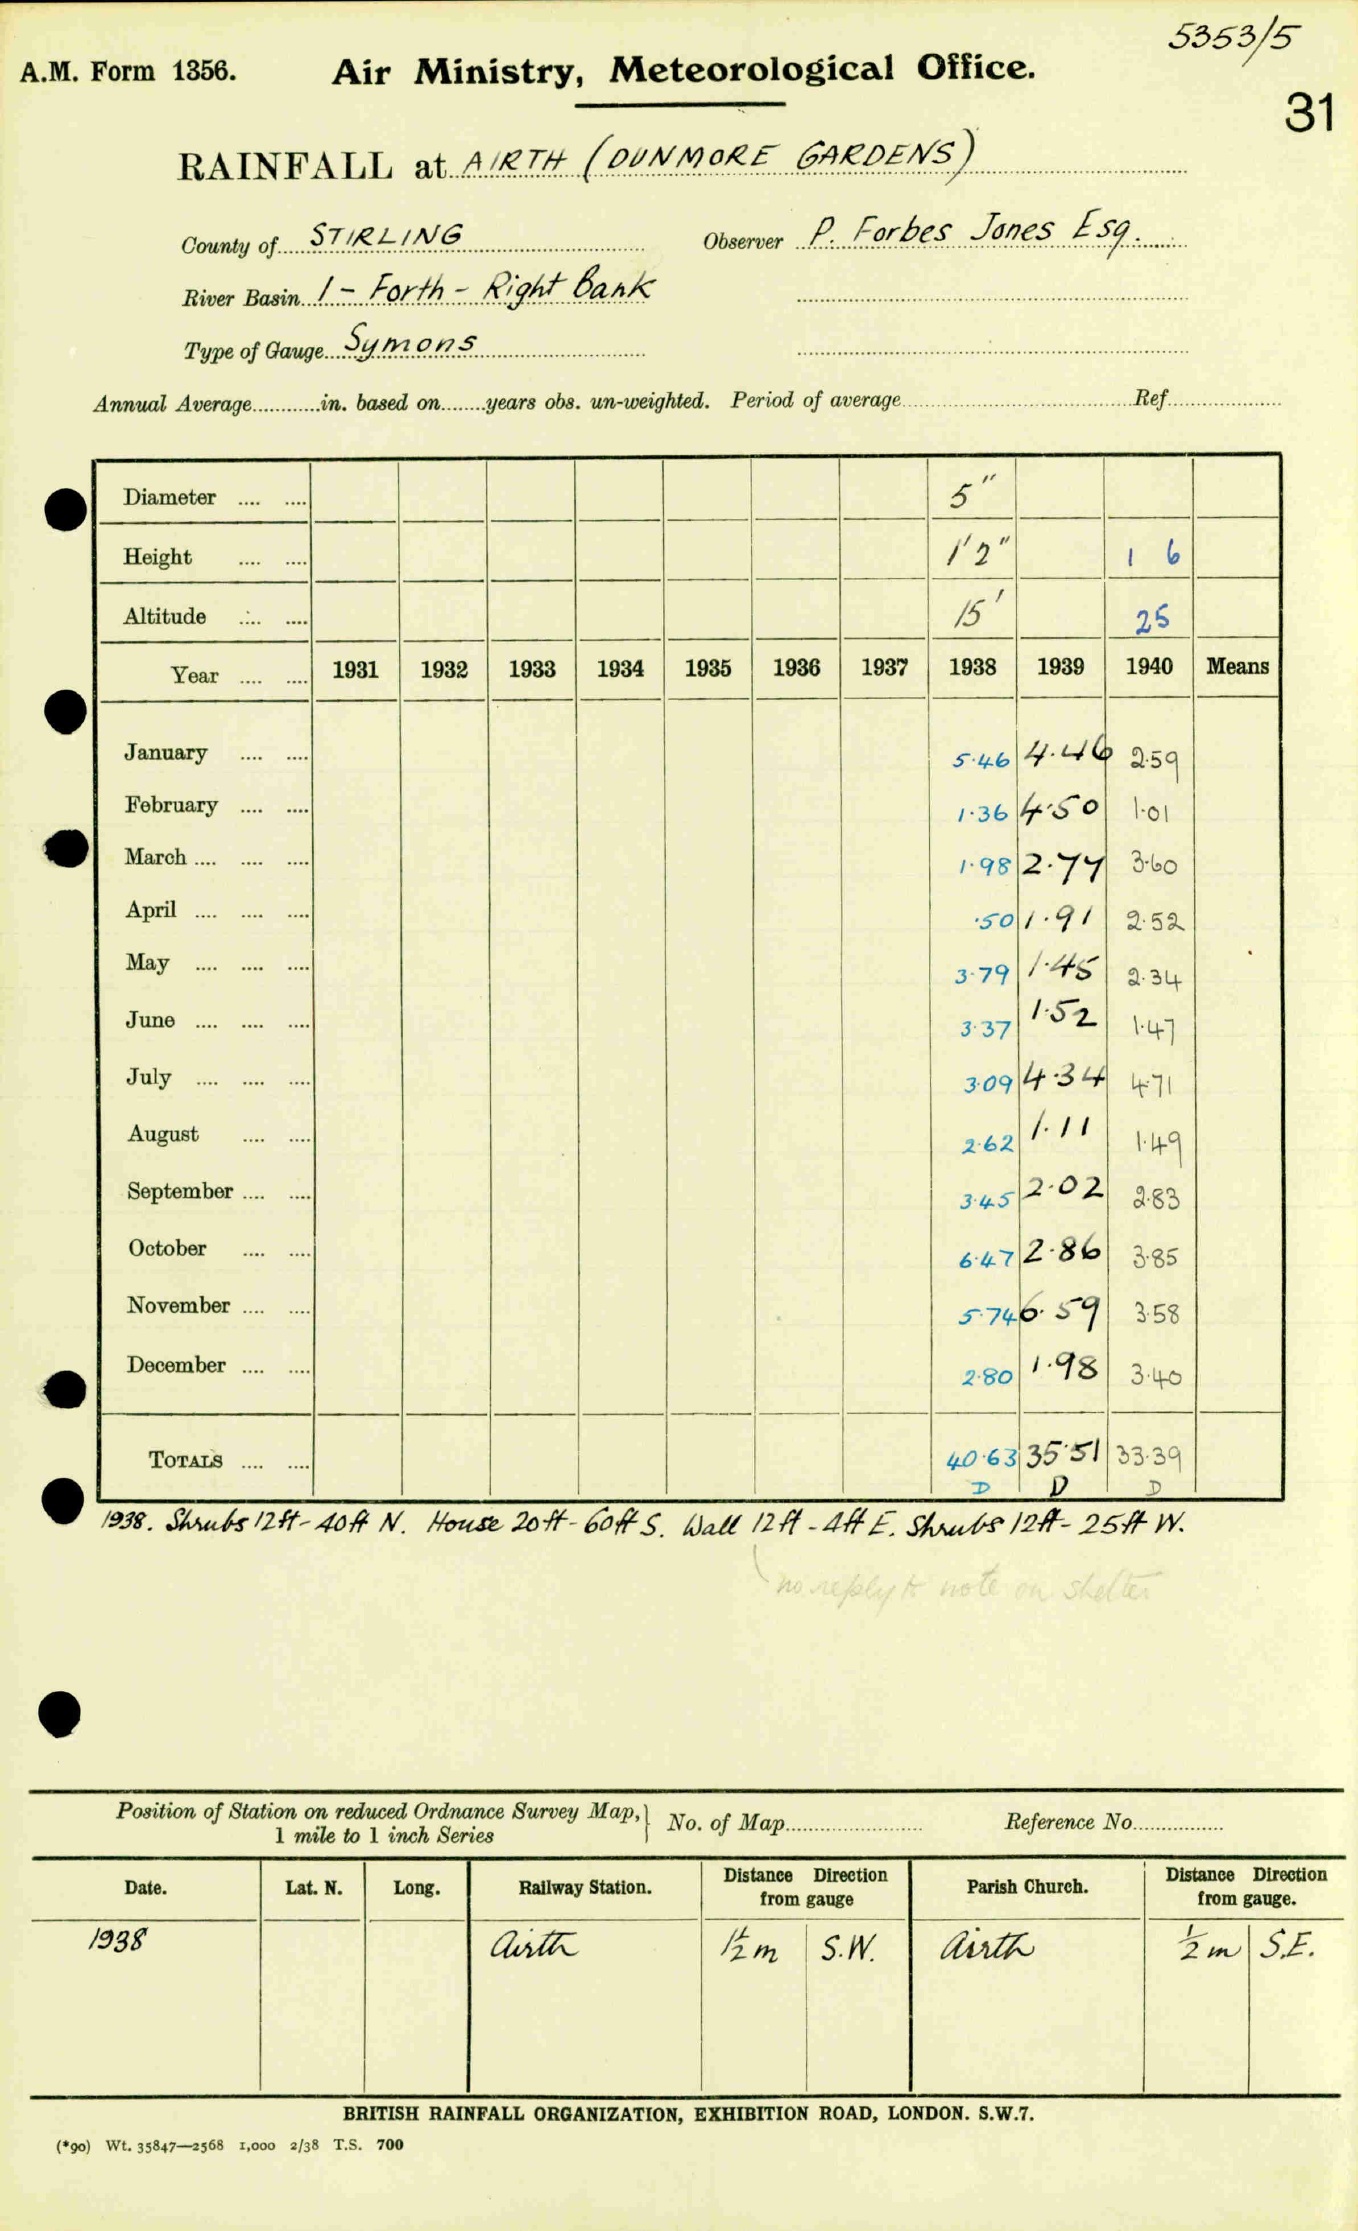 5353/5
A.M. Form 1356. Air Ministry, Meteorological Office.
31
RAINFALL at AIRTH (DUNMORE GARDENS)
County of STIRLING Observer P. Forbes Jones Esq.
River Basin 1 - Forth - Right Bank
Type of Gauge Symons
Annual Average............in. based on........years obs. un-weighted. Period of average............Ref............
Diameter .... .... 5"
Height .... .... 1'2" 1 6
Altitude .... .... 15' 25
Year .... .... 1931 1932 1933 1934 1935 1936 1937 1938 1939 1940 Means
January .... .... 5.46 4.46 2.59
February .... .... 1.36 4.50 1.01
March .... .... .... 1.98 2.77 3.60
April .... .... .... .50 1.91 2.52
May .... .... .... 3.79 1.45 2.34
June .... .... .... 3.37 1.52 1.47
July .... .... .... 3.09 4.34 4.71
August .... .... 2.62 1.11 1.49
September .... .... 3.45 2.02 2.83
October .... .... 6.47 2.86 3.85
November .... .... 5.74 6.59 3.58
December .... .... 2.80 1.98 3.40
TOTALS .... .... 40.63 35.51 33.39
D D D
1938. Shrubs 12ft - 40ft N. House 20ft - 60ft S. Wall 12ft - 4ft E. Shrubs 12ft - 25ft W.
no reply to note on shelter
Position of Station on reduced Ordnance Survey Map, 1 mile to 1 inch Series } No. of Map............ Reference No............
Date. Lat. N. Long. Railway Station. Distance Direction from gauge Parish Church. Distance Direction from gauge.
1938 Airth 1½ m S.W. Airth ½ m S.E.
BRITISH RAINFALL ORGANIZATION, EXHIBITION ROAD, LONDON. S.W.7.
(*90) Wt. 35847—2568 1,000 2/38 T.S. 700